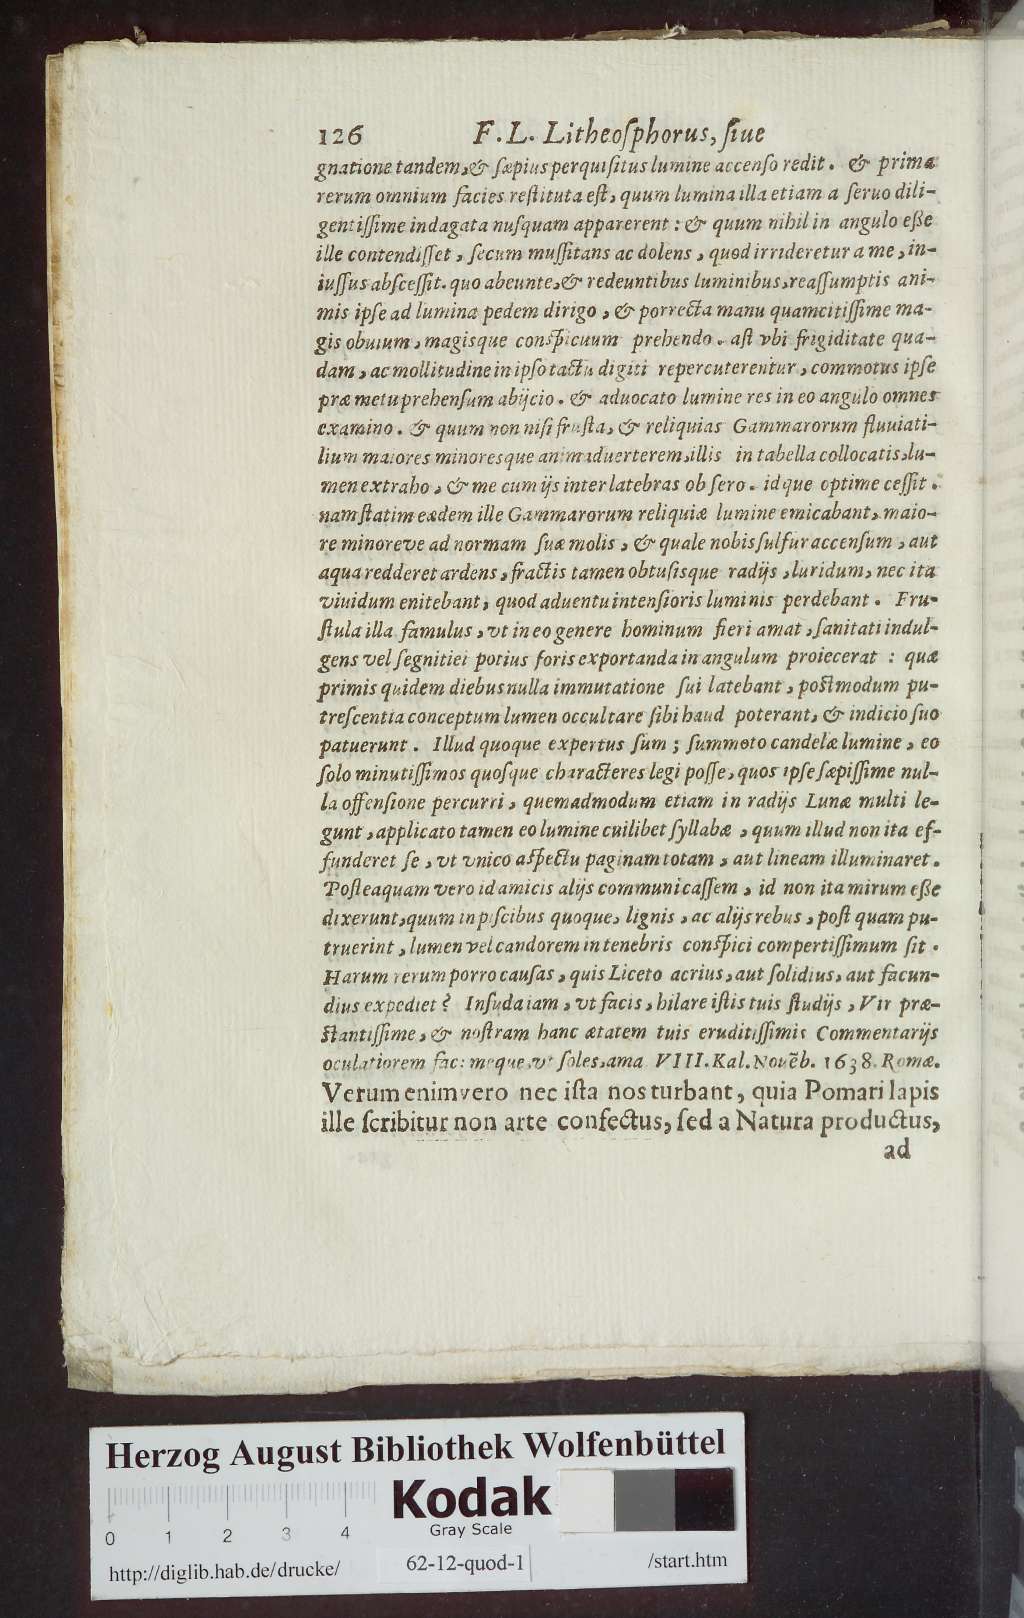 126 F. L. Litheoſphorus, ſiue
gnatione tandem, & ſæpius perquiſitus lumine accenſo redit. & prima
rerum omnium facies reſtituta eſt, quum lumina illa etiam a ſeruo dili-
gentiſſime indagata nuſquam apparerent: & quum nihil in angulo eße
ille contendiſſet, ſecum muſſitans ac dolens, quod irrideretur a me, in-
iuſſus abſceſſit. quo abeunte, & redeuntibus luminibus, reaſſumptis ani-
mis ipſe ad lumina pedem dirigo, & porrecta manu quamcitiſſime ma-
gis obuium, magisque conſpicuum prehendo. aſt vbi frigiditate qua-
dam, ac mollitudine in ipſo tactu digiti repercuterentur, commotus ipſe
præ metu prehenſum abijcio. & aduocato lumine res in eo angulo omnes
examino. & quum non niſi fruſta, & reliquias Gammarorum fluuiati-
lium maiores minoresque animaduerterem, illis in tabella collocatis, lu-
men extraho, & me cum ijs inter latebras obſero. idque optime ceſſit.
nam ſtatim eædem ille Gammarorum reliquiæ lumine emicabant, maio-
re minoreve ad normam ſuæ molis, & quale nobis ſulfur accenſum, aut
aqua redderet ardens, fractis tamen obtuſisque radijs, luridum, nec ita
viuidum enitebant, quod aduentu intenſioris luminis perdebant. Fru-
ſtula illa famulus, vt in eo genere hominum fieri amat, ſanitati indul-
gens vel ſegnitiei potius foris exportanda in angulum proiecerat: quæ
primis quidem diebus nulla immutatione ſui latebant, poſtmodum pu-
treſcentia conceptum lumen occultare ſibi haud poterant, & indicio ſuo
patuerunt. Illud quoque expertus ſum; ſummoto candelæ lumine, eo
ſolo minutiſſimos quoſque characteres legi poſſe, quos ipſe ſæpiſſime nul-
la offenſione percurri, quemadmodum etiam in radijs Lunæ multi le-
gunt, applicato tamen eo lumine cuilibet ſyllabæ, quum illud non ita ef-
funderet ſe, vt vnico aſpectu paginam totam, aut lineam illuminaret.
Poſteaquam vero id amicis alijs communicaſſem, id non ita mirum eße
dixerunt, quum in piſcibus quoque, lignis, ac alijs rebus, poſt quam pu-
truerint, lumen vel candorem in tenebris conſpici compertiſſimum ſit.
Harum rerum porro cauſas, quis Liceto acrius, aut ſolidius, aut facun-
dius expediet? Inſuda iam, vt facis, hilare iſtis tuis ſtudijs, Vir præ-
ſtantiſſime, & noſtram hanc ætatem tuis eruditiſſimis Commentarijs
oculatiorem fac: meque, vt ſoles, ama VIII. Kal. Nouẽb. 1638. Romæ.
Verum enimvero nec iſta nos turbant, quia Pomari lapis
ille ſcribitur non arte confectus, ſed a Natura productus,
ad
Herzog August Bibliothek Wolfenbüttel
Kodak
Gray Scale
0 1 2 3 4
http://diglib.hab.de/drucke/ 62-12-quod-1 /start.htm